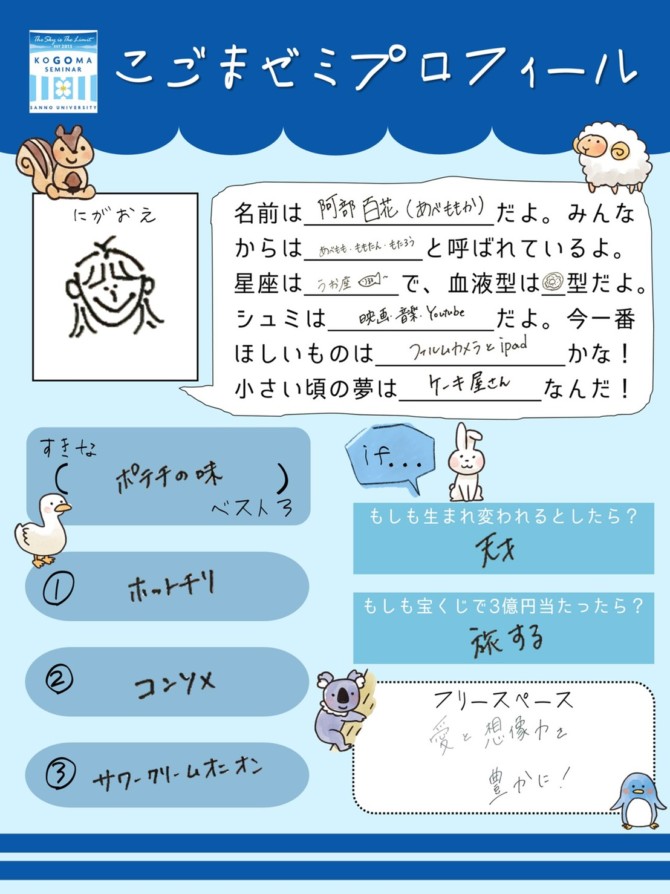 The Sky is The Limit
KOGOMA
SEMINAR
SANNO UNIVERSITY
こごまゼミプロフィール
にがおえ
名前は 阿部 百花（あべももか）だよ。みんな
からは あべもも・ももたん・もたろう と呼ばれているよ。
星座は うお座 で、血液型は 型だよ。
シュミは 映画・音楽・Youtube だよ。今一番
ほしいものは フィルムカメラとipad かな！
小さい頃の夢は ケーキ屋さん なんだ！
すきな
（ ポテチの味 ）
ベスト3
① ホットチリ
② コンソメ
③ サワークリームオニオン
if...
もしも生まれ変われるとしたら？
天才
もしも宝くじで3億円当たったら？
旅する
フリースペース
愛と想像力を
豊かに！